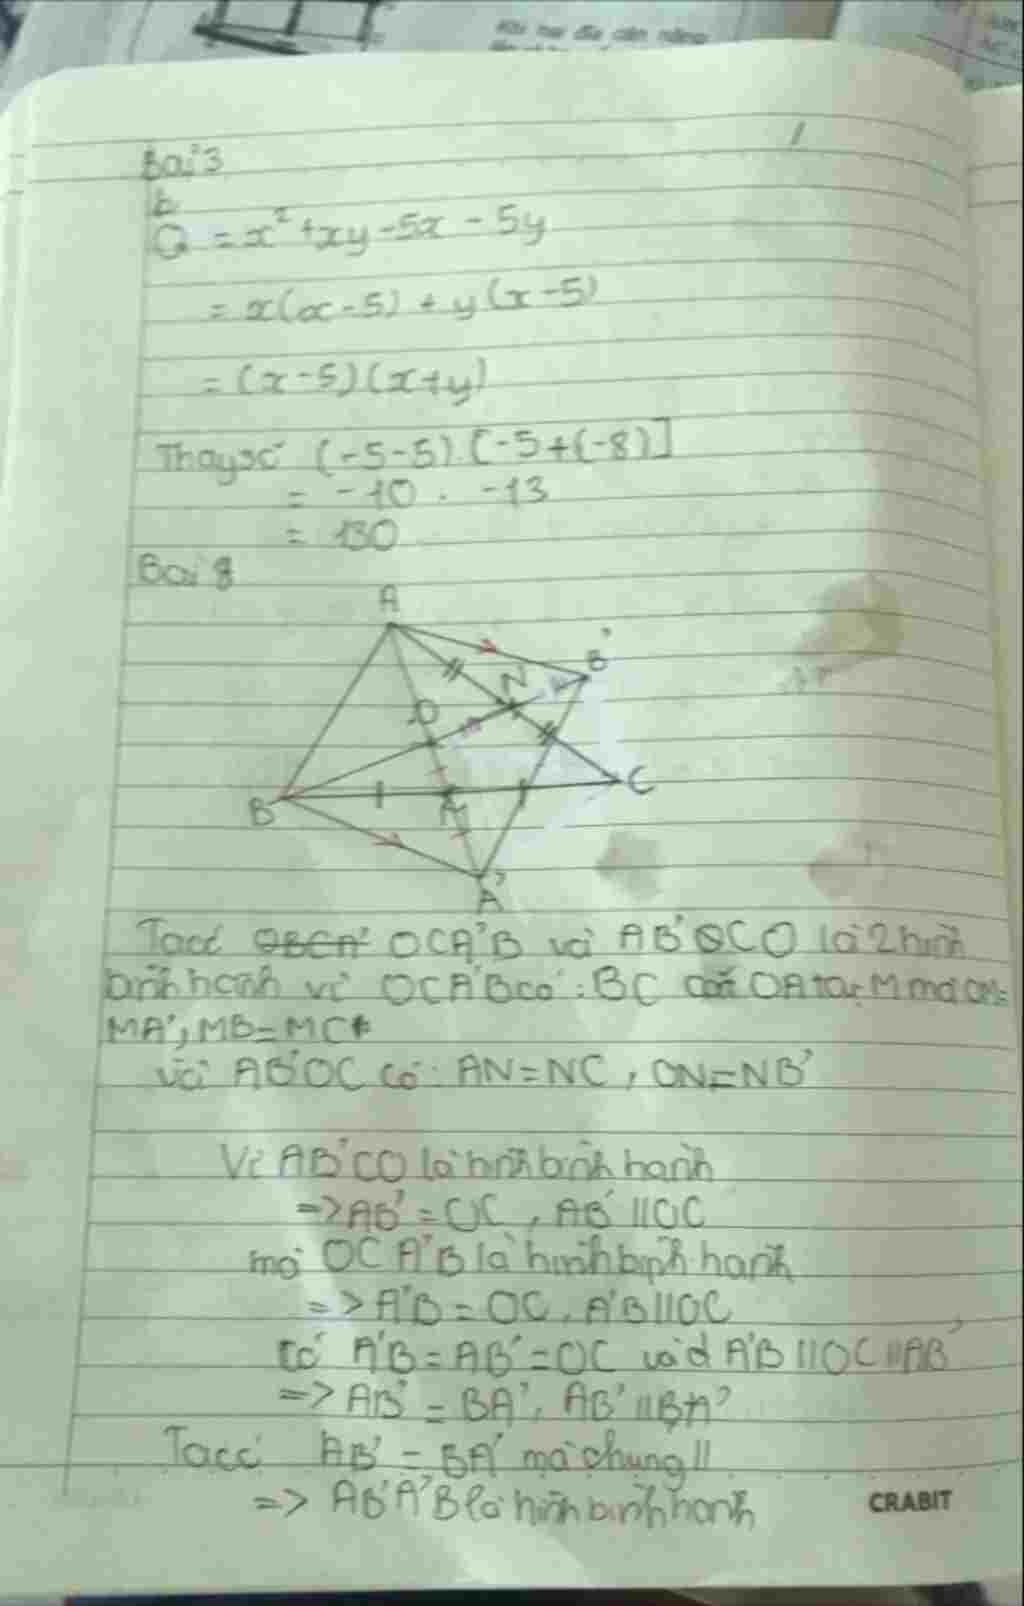 Khi hai đĩa cân nặng
1
Bài 3
b
Q = x² + xy - 5x - 5y
= x(x - 5) + y(x - 5)
= (x - 5)(x + y)
Thay số (-5-5).[-5+(-8)]
= -10 . -13
= 130
Bài 8
A
B'
N
O
B
C
A'
Ta có OBCA' OCA'B và AB'CO là 2 hình
bình hành vì OCA'B có : BC cắt OA tại M mà OM=
MA', MB=MC
và AB'OC có: AN=NC, ON=NB'
Vì AB'CO là hình bình hành
=> AB' = OC, AB' // OC
mà OCA'B là hình bình hành
=> A'B = OC, A'B // OC
Có A'B = AB' = OC và A'B // OC // AB'
=> AB' = BA', AB' // BA'
Ta có AB' = BA' mà chúng //
=> AB'A'B là hình bình hành
CRABIT